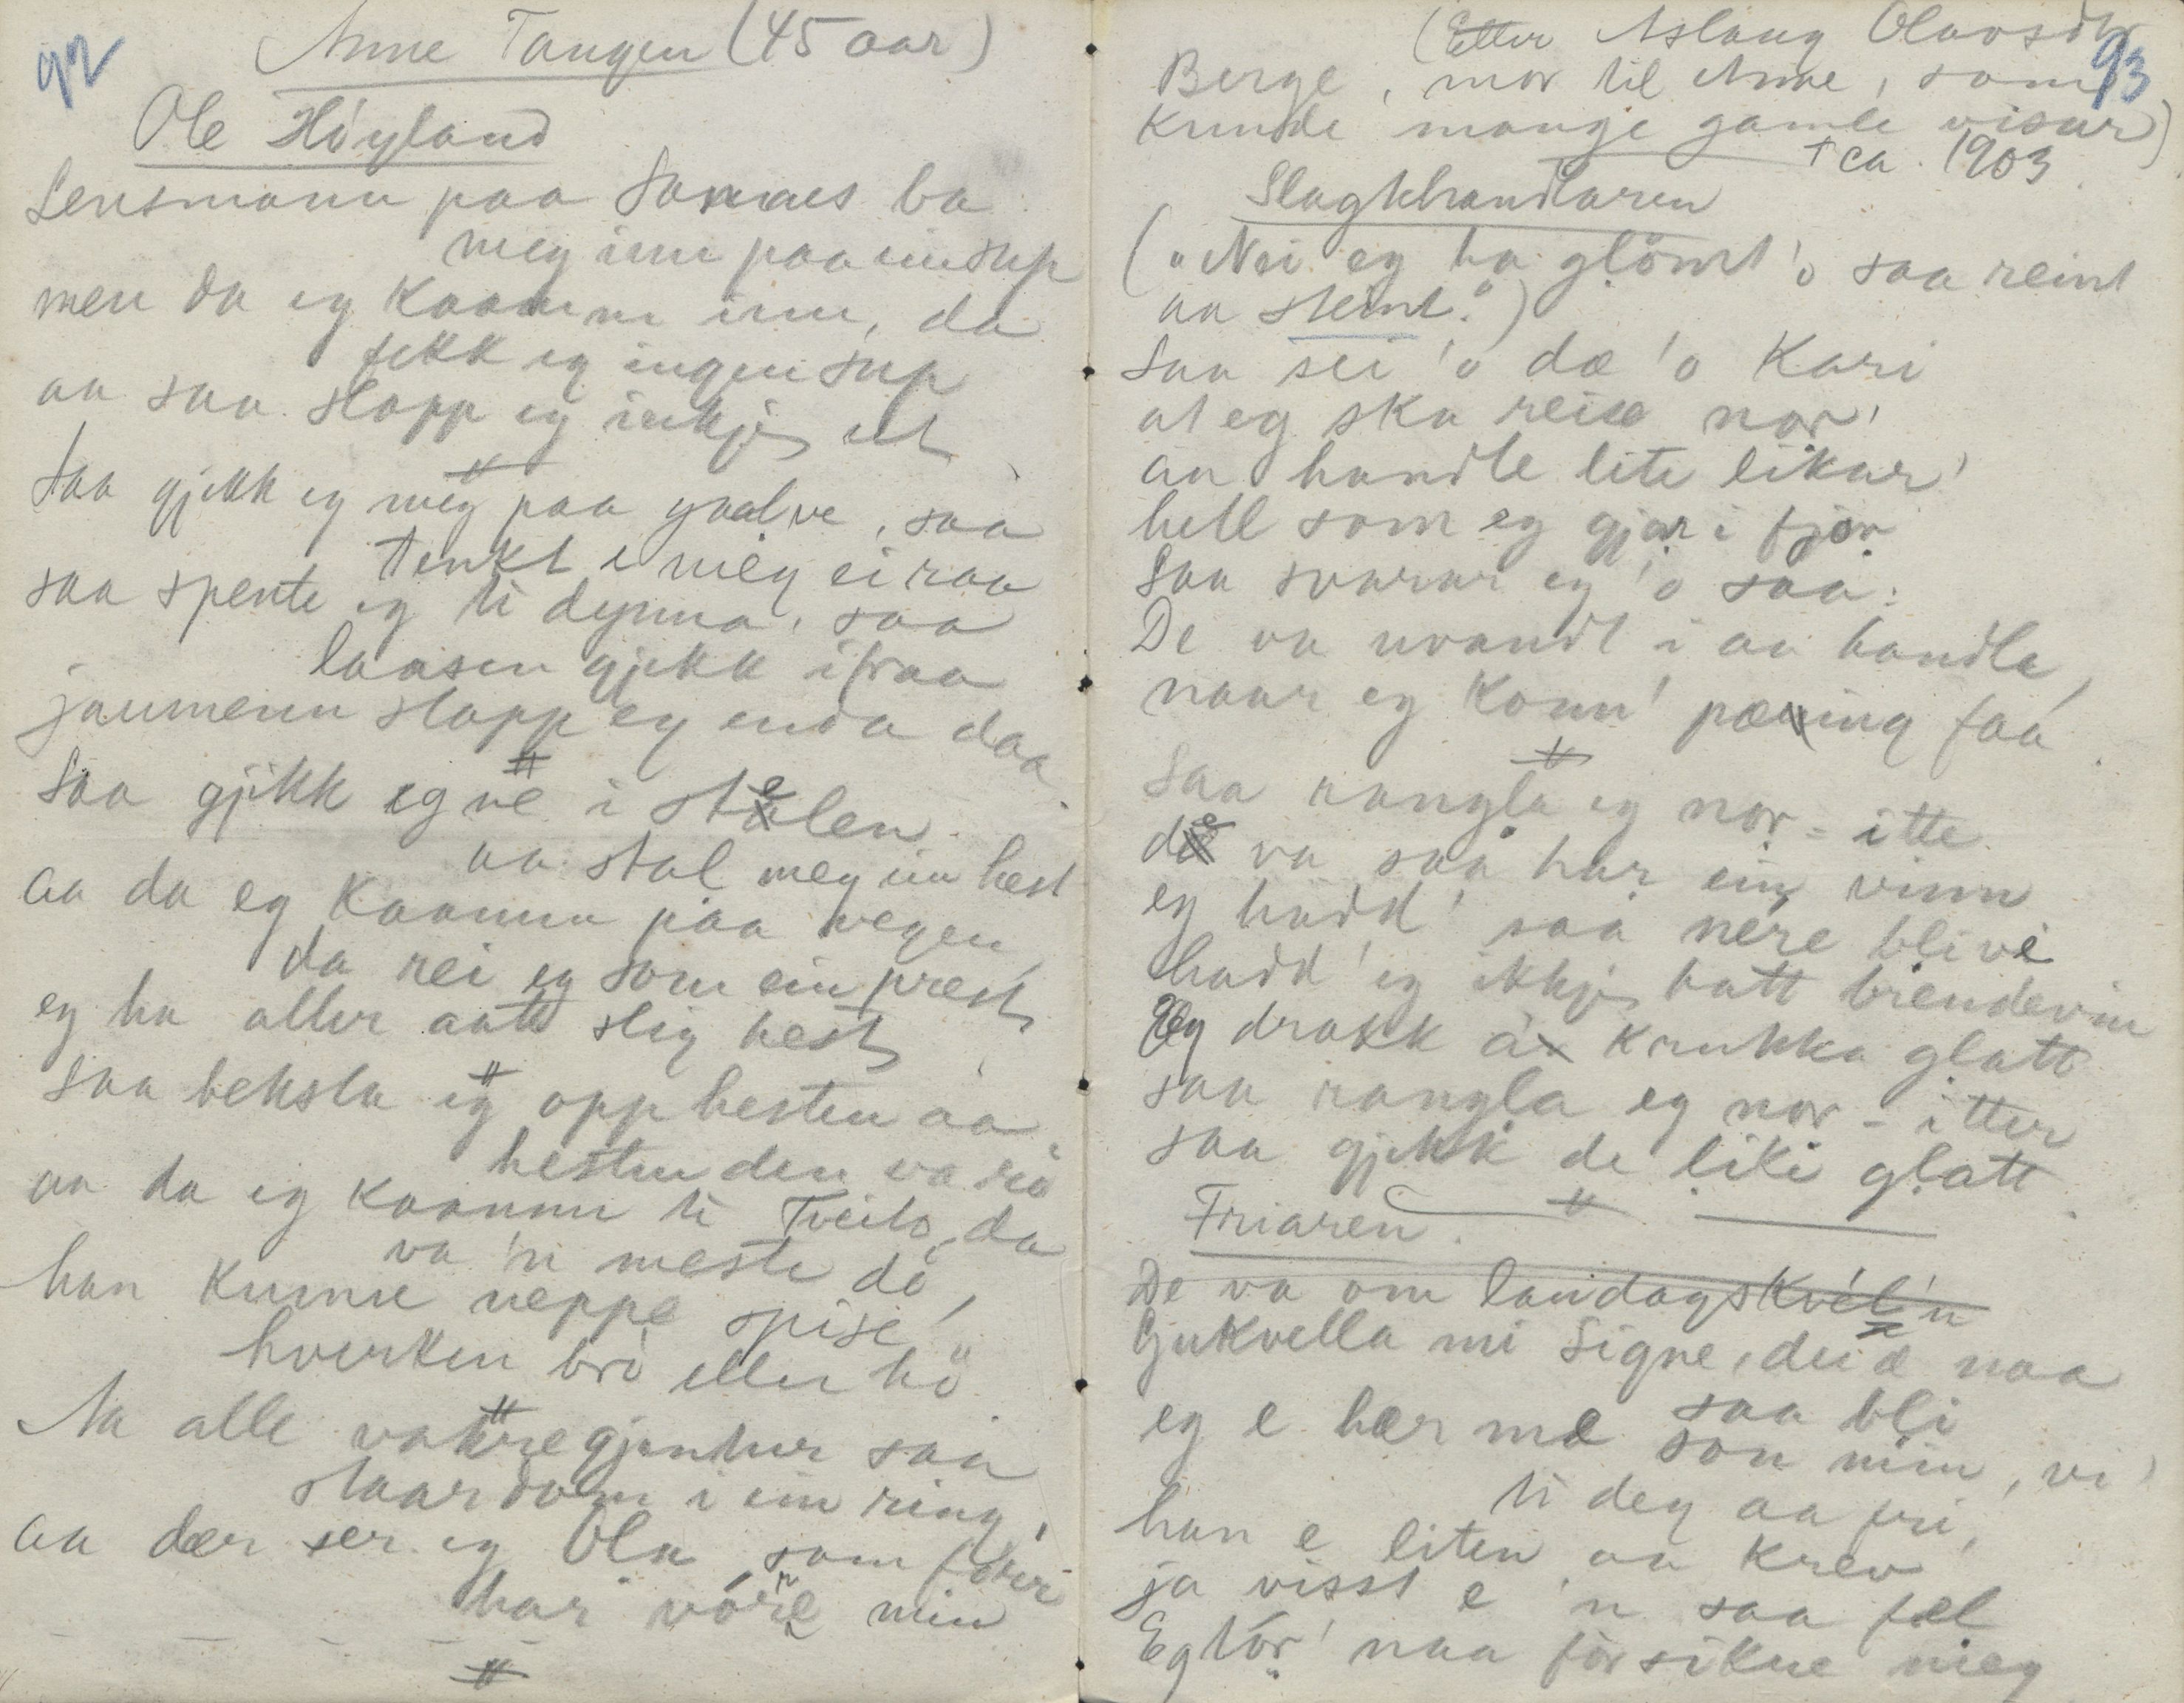 92
Anne Tangen (45 aar)
Ole Höyland
Lensmann paa Sannes ba
meg inn paa ein sup
men da eg kaamm inn, da
fekk eg ingen sup
aa saa slapp eg inkje ut
Saa gjekk eg meg paa golve, saa
tenkt e meg ei raa
saa spente eg ti dynna, saa
laasen gjekk ifraa
jaumenn slapp eg enda daa.
Saa gjikk eg ne i stelen
aa stal meg ein hest
aa da eg kaamm paa vegen,
da rei eg som ein prest
eg ha aller aatt slig hest
Saa beksla eg opp hesten aa
hesten den va rö
aa da eg kaamm ti Tveito, da
va 'n meste dö,
han kunne neppe spise,
hverken brö eller hö
Aa alle vakre gjentur saa
staar dom i ein ring,
aa dær ser eg Ola som förr
har vóre min
93
(Etter Aslaug Olavsdtr
Berge, mor til Anne, som
kunde mange gamle visur)
† ca. 1903
Slagtehandlaren
("Nei eg ha glömt 'o saa reint
aa steint.")
Saa sei 'o dæ 'o Kari
at eg ska reise nor'
aa handle lite likar'
hell som eg gjor i fjor
Saa svarar eg 'o saa:
De va uvandt i aa handla,
naar eg konn' pæning faa.
Saa rangla eg nor-itte
de va saa har ein vinn
eg hadd' saa nere blive
hadd' eg ikkje hatt brendevin
Eg drakk a krukka glatt
saa rangla eg nor-itter
saa gjekk de like glatt.
Friaren.
De va om laudagskvél'n
Gukvella mi Signe, dei æ naa
saa bli
eg e hær mæ son min, vi'
ti deg aa fri,
han e liten aa krev
ja visst e 'n saa fæl
Eg tór' naa forsikne meg